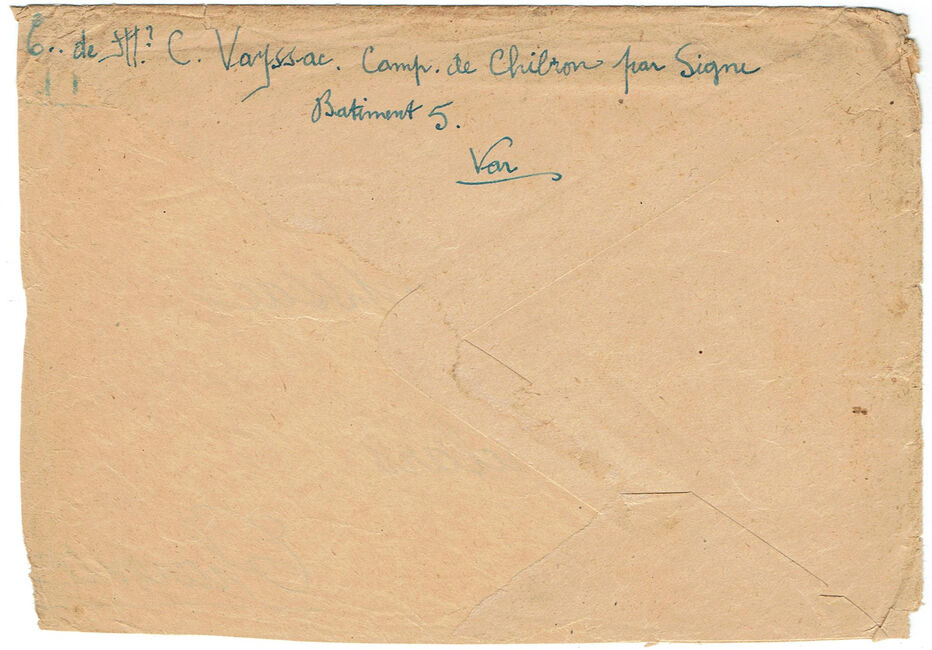 de Mr C. Vayssac. Camp. de Chibron par Signe
Batiment 5.
Var